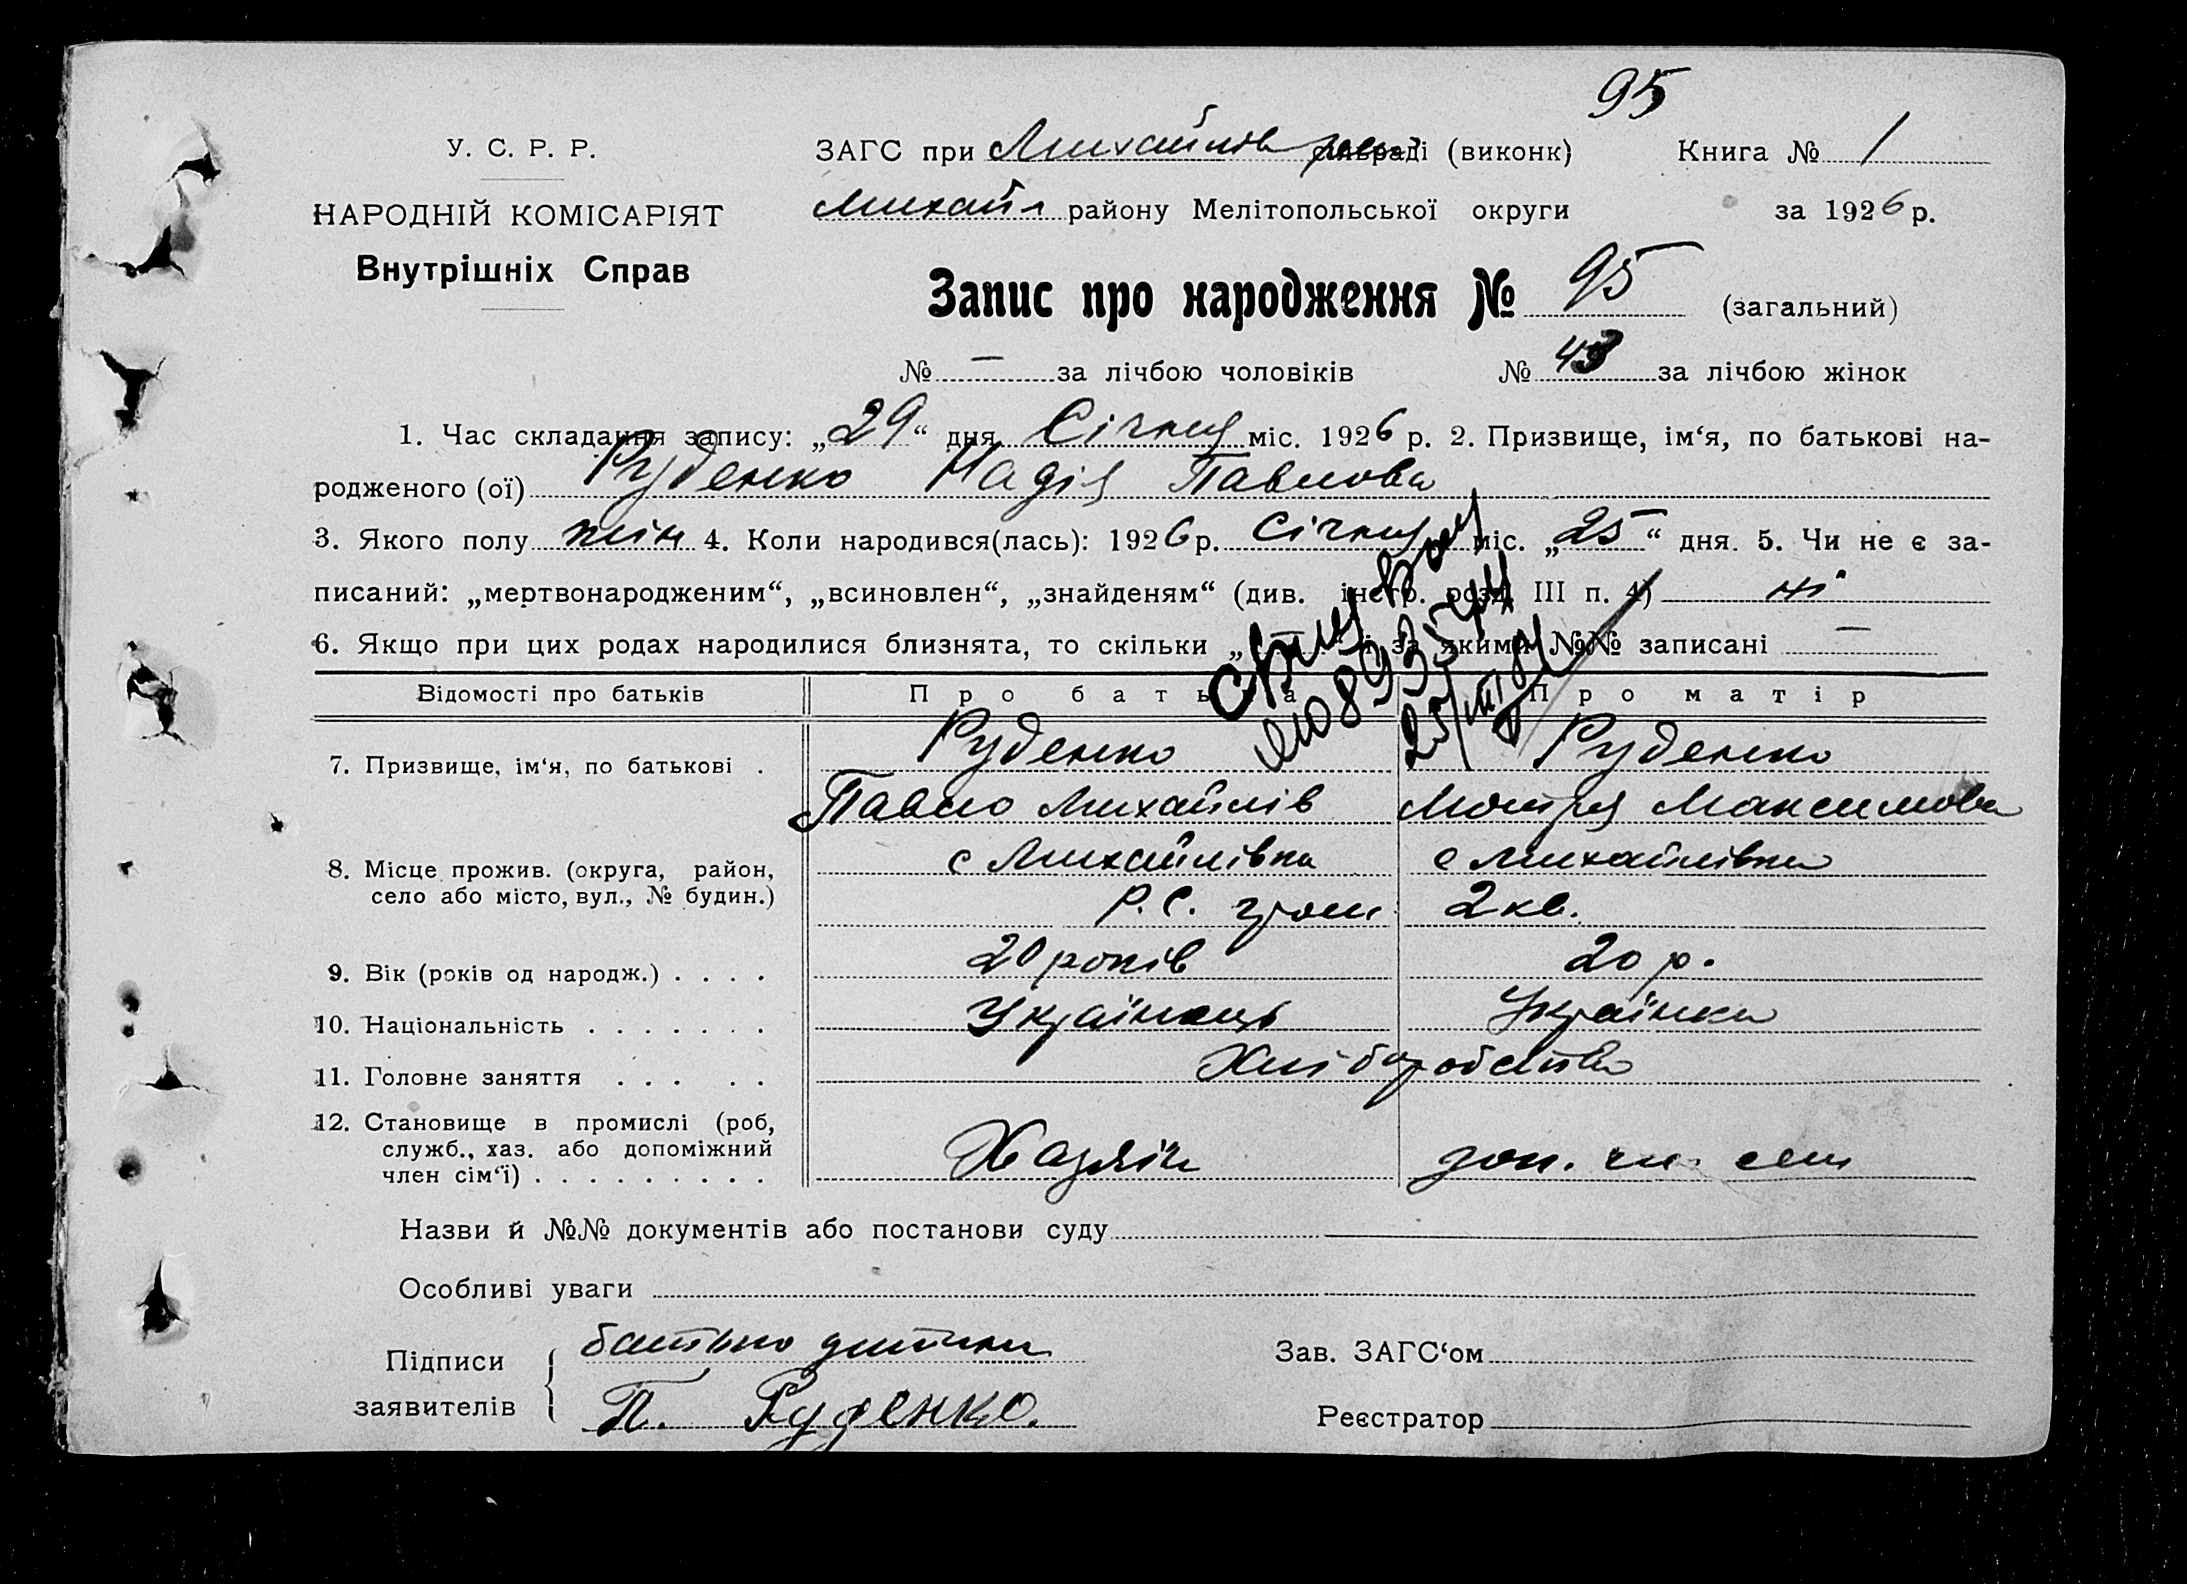 95
У. С. Р. Р.
ЗАГС при Михайлів сільраді (виконк) Книга № 1
НАРОДНІЙ КОМІСАРІЯТ
Михайл району Мелітопольської округи за 1926 р.
Внутрішніх Справ
Запис про народження № 95 (загальний)
№ — за лічбою чоловіків № 43 за лічбою жінок
1. Час складання запису: „29“ дня Січня міс. 1926 р. 2. Призвище, ім‘я, по батькові на-
родженого (ої) Руденко Надія Павлова
3. Якого полу жін 4. Коли народився(лась): 1926 р. Січня міс. „25“ дня. 5. Чи не є за-
писаний: „мертвонародженим“, „всиновлен“, „знайденям“ (див. інстр. розд. III п. 4) ні
6. Якщо при цих родах народилися близнята, то скільки „—“ і за якими №№ записані —
Відомості про батьків Про батька Про матір
7. Призвище, ім‘я, по батькові . Руденко Руденко
Павло Михайлів Мотря Максимова
8. Місце прожив. (округа, район, с Михайлівка с Михайлівка
село або місто, вул., № будин.) Р.С. гром 2 кв.
9. Вік (років од народж.) . . . . 20 років 20 р.
10. Національність . . . . . . . Українець Українка
11. Головне заняття . . . . . Хліборобства
12. Становище в промислі (роб,
служб., хаз. або допоміжний Хазяїн доп. чл. сем
член сім‘ї) . . . . . . . . .
Назви й №№ документів або постанови суду
Особливі уваги
Підписи батько дитини Зав. ЗАГС‘ом
заявителів П. Руденко. Реєстратор